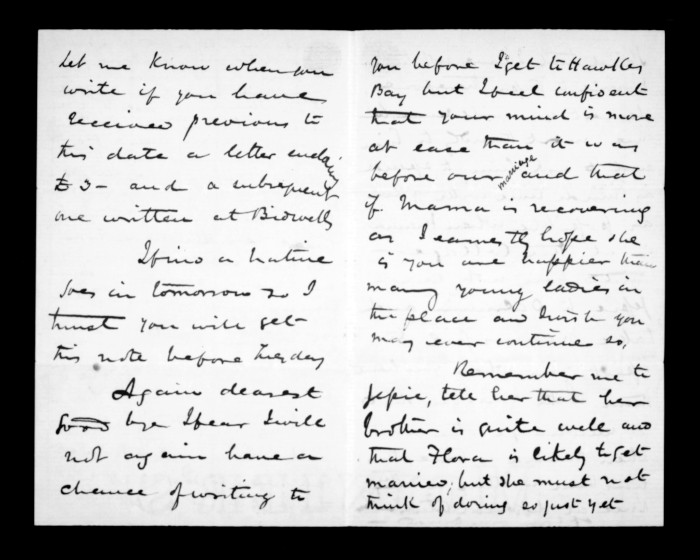 Let me know when you
write if you have
received previous to
this date a letter enclosing
£3- and a subsequent
one written at Bidwells
I find a native
goes in tomorrow so I
trust you will get
this note before Tuesday
Again dearest
Good bye I fear I will
not again have a
chance of writing to
you before I get to Hawkes
Bay but I feel confident
that your mind is more
at ease than it was
before our marriage and that
if Mama is recovering
as I earnestly hope she
is you are happier than
many young ladies in
the place and I wish you
may ever continue so,
Remember me to
tell her that her
brother is quite well and
that Flora is likely to get
married, but she must not
think of doing so just yet